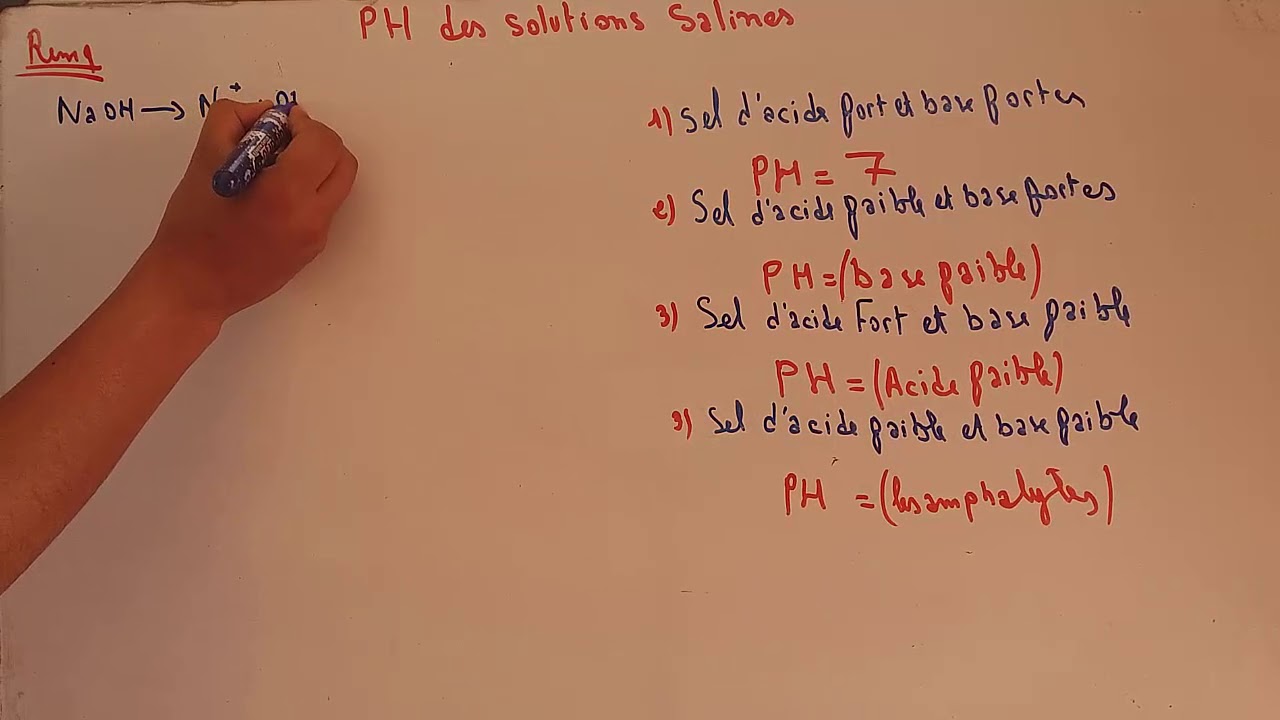 PH des solutions Salines
Remq
NaOH → N + OH
1) Sel d'acide fort et base fortes
PH = 7
2) Sel d'acide faible et base fortes
PH = (base faible)
3) Sel d'acide Fort et base faible
PH = (Acide faible)
9) Sel d'acide faible et base faible
PH = (les ampholytes)